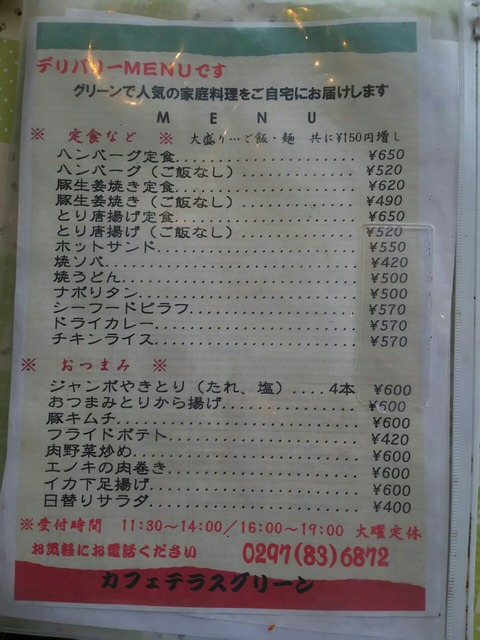 デリバリーMENUです
グリーンで人気の家庭料理をご自宅にお届けします
MENU
※ 定食など ※ 大盛り…ご飯・麺 共に¥150円増し
ハンバーグ定食 ¥650
ハンバーグ(ご飯なし) ¥520
豚生姜焼き定食 ¥620
豚生姜焼き(ご飯なし) ¥490
とり唐揚げ定食 ¥650
とり唐揚げ(ご飯なし) ¥520
ホットサンド ¥550
焼ソバ ¥420
焼うどん ¥500
ナポリタン ¥500
シーフードピラフ ¥570
ドライカレー ¥570
チキンライス ¥570
※ おつまみ ※
ジャンボやきとり(たれ、塩)....4本 ¥600
おつまみとりから揚げ ¥600
豚キムチ ¥600
フライドポテト ¥420
肉野菜炒め ¥600
エノキの肉巻き ¥600
イカ下足揚げ ¥600
日替りサラダ ¥400
※受付時間 11:30〜14:00/16:00〜19:00 火曜定休
お気軽にお電話ください 0297(83)6872
カフェテラスグリーン